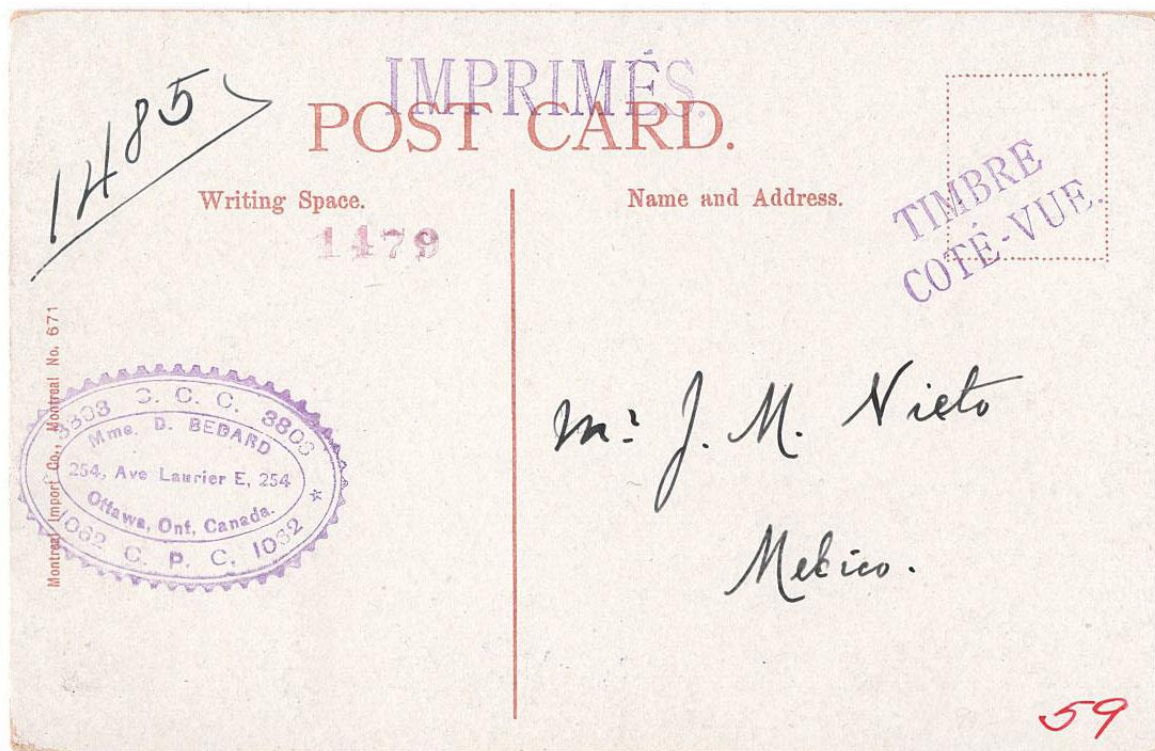 1485
IMPRIMÉS.
POST CARD.
Writing Space.
1479
Name and Address.
TIMBRE
COTÉ-VUE.
Montreal Import Co., Montreal No. 671
3803 C. C. C. 3803
Mme. D. BEDARD
254, Ave Laurier E, 254
Ottawa, Ont, Canada.
C. P. C.
Mr. J. M. Nieto
Mexico.
59